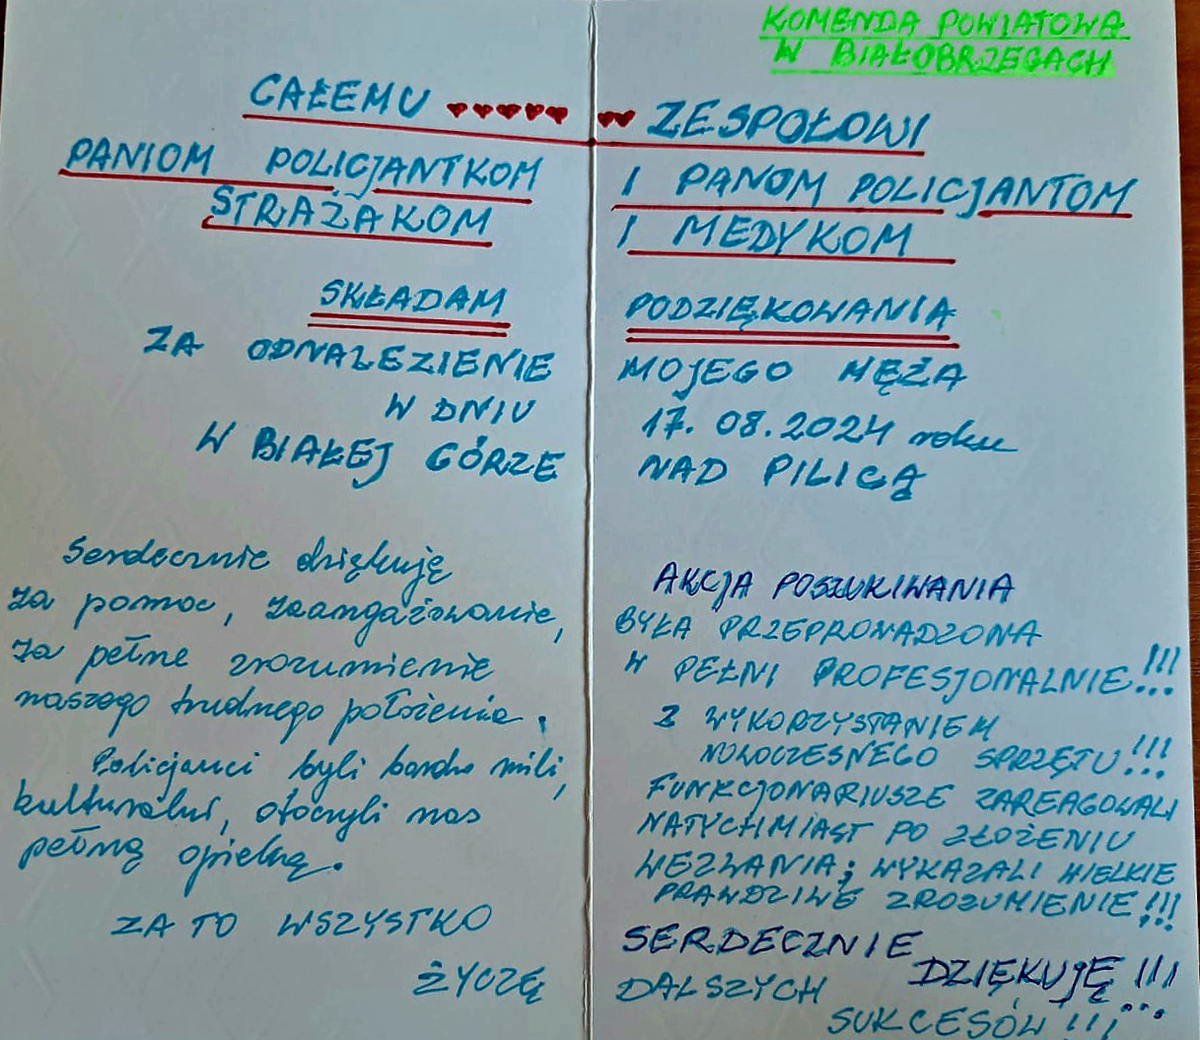 KOMENDA POWIATOWA
W BIAŁOBRZEGACH
CAŁEMU ♥♥♥♥♥ ♥♥ ZESPOŁOWI
PANIOM POLICJANTKOM I PANOM POLICJANTOM
STRAŻAKOM I MEDYKOM
SKŁADAM PODZIĘKOWANIA
ZA ODNALEZIENIE MOJEGO MĘŻA
W DNIU 17.08.2024 roku
W BIAŁEJ GÓRZE NAD PILICĄ
Serdecznie dziękuję
za pomoc, zaangażowanie,
za pełne zrozumienie
naszego trudnego położenia.
Policjanci byli bardzo mili,
kulturalni, otoczyli nas
pełną opieką.
AKCJA POSZUKIWANIA
BYŁA PRZEPROWADZONA
W PEŁNI PROFESJONALNIE!!!
Z WYKORZYSTANIEM
NOWOCZESNEGO SPRZĘTU!!!
FUNKCJONARIUSZE ZAREAGOWALI
NATYCHMIAST PO ZŁOŻENIU
WEZWANIA; WYKAZALI WIELKIE
PRAWDZIWE ZROZUMIENIE!!!
SERDECZNIE
DZIĘKUJĘ!!!
ZA TO WSZYSTKO
ŻYCZĘ DALSZYCH
SUKCESÓW!!!